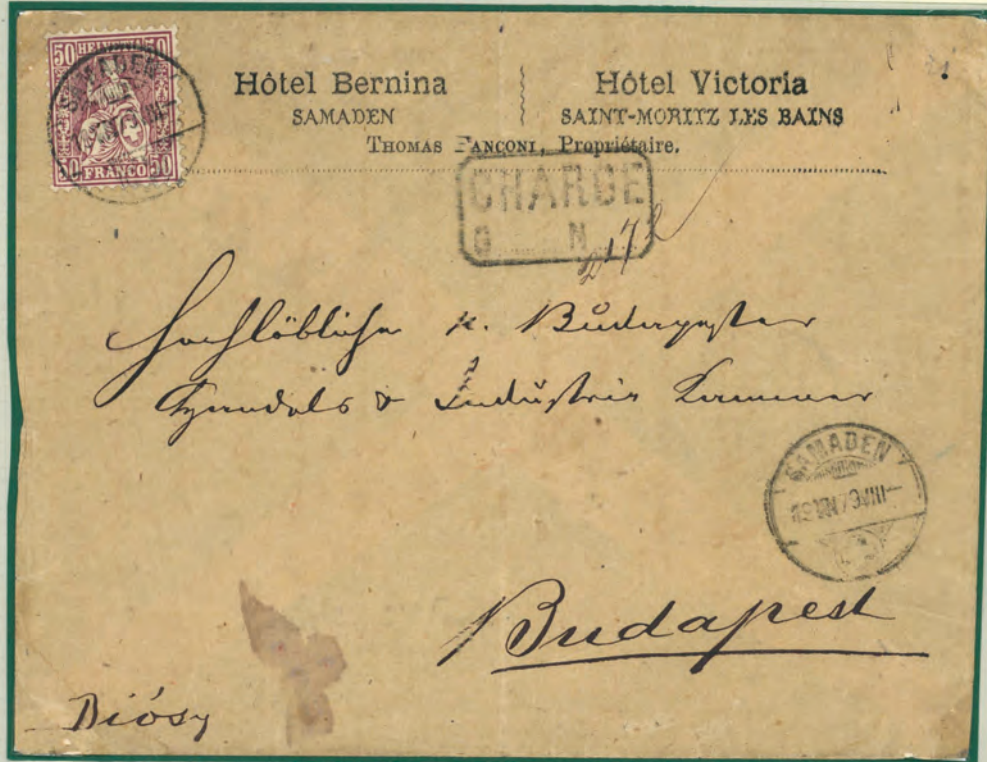 50 HELVETIA 50
50 FRANCO 50
SAMADEN
Hôtel Bernina
SAMADEN
Hôtel Victoria
SAINT-MORITZ LES BAINS
THOMAS FANCONI, Propriétaire.
CHARGE
G N
217
Hochlöbliche k. Budapester
Handels & Industrie Kammer
SAMADEN
Budapest
Diósy